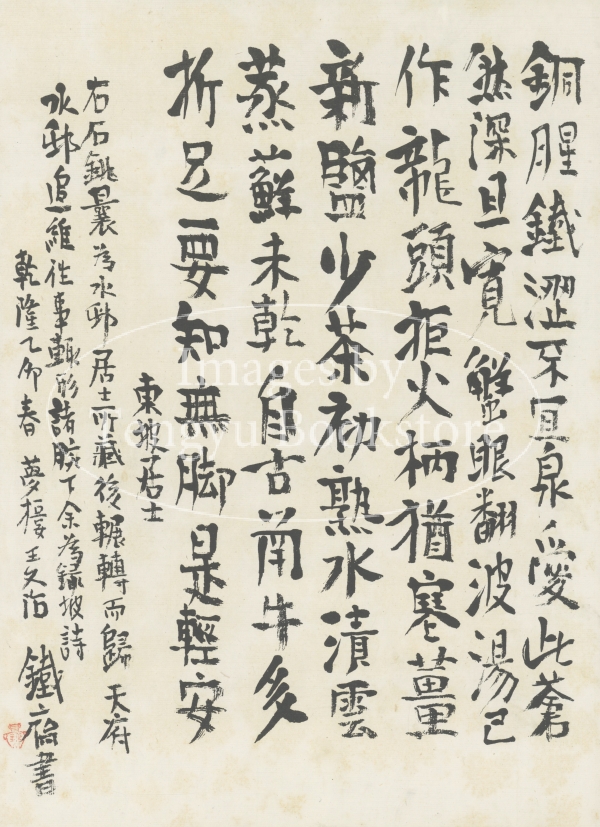 銅腥鐵澀不宜泉愛此蒼
然深且寬蟹眼翻波湯已
作龍頭拒火柄猶寒薑
新鹽少茶初熟水漬雲
蒸蘚未乾自古函牛多
折足要知無脚是輕安
東坡居士
右石銚曩為水邨居士所藏後輾轉而歸天府
水邨追維往事輙形諸腕下余為録坡詩
乾隆乙卯春夢樓王文治
鐵齋書
Images by
Tongyu Bookstore